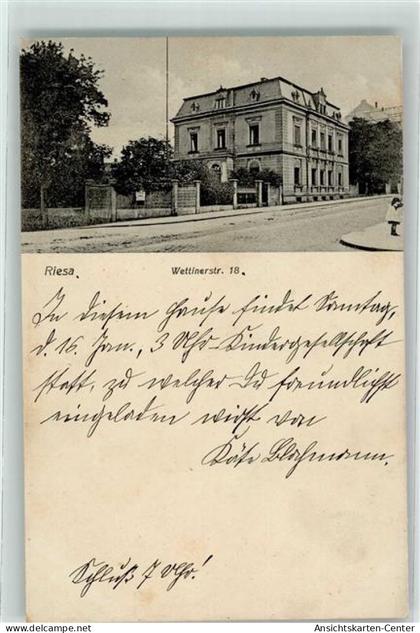 Riesa.
Wettinerstr. 18.
In diesem Hause findet Sonntag,
d. 16. Jan., 3 Uhr Kindergesellschaft
statt, zu welcher Du freundlichst
eingeladen wirst von
Käte Blohmann.
Schluß 7 Uhr!
Ansichtskarten-Center